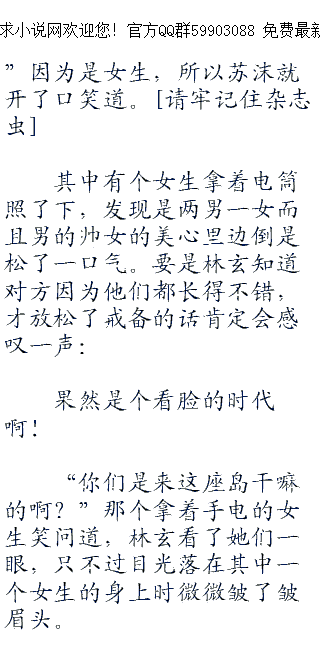 求小说网欢迎您！官方QQ群59903088 免费最新
”因为是女生，所以苏沫就
开了口笑道。[请牢记住杂志
虫]
其中有个女生拿着电筒
照了下，发现是两男一女而
且男的帅女的美心里边倒是
松了一口气。要是林玄知道
对方因为他们都长得不错，
才放松了戒备的话肯定会感
叹一声：
果然是个看脸的时代
啊！
“你们是来这座岛干嘛
的啊？”那个拿着手电的女
生笑问道，林玄看了她们一
眼，只不过目光落在其中一
个女生的身上时微微皱了皱
眉头。